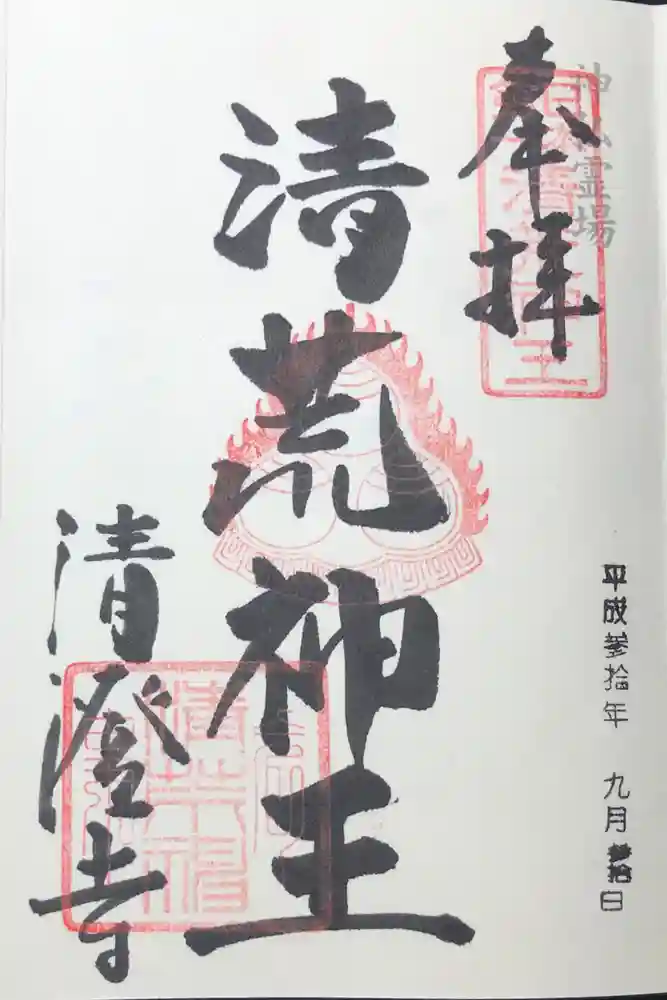 奉拝
神仏霊場
清荒神王
清澄寺
平成参拾年 九月参拾日